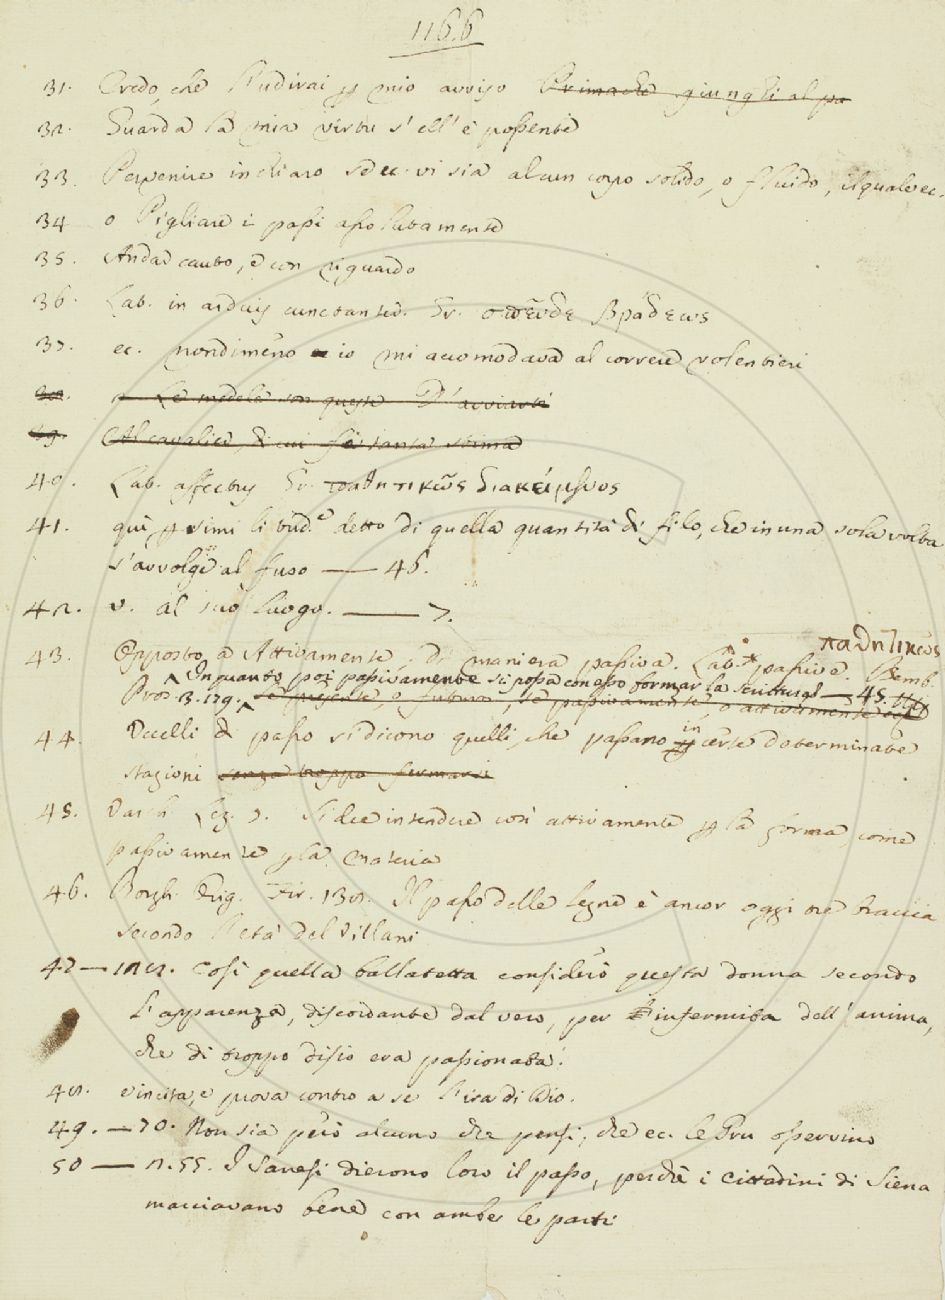 1166
31. Credo, che l'udirai p mio avviso Primachè giunghi al pa
32. Guarda la mia virtù s'ell'è possente
33. Pervenire in chiaro se ec. vi sia alcun corpo solido, o fluido, il quale ec.
34 o Pigliare i passi assolutamente
35. Andar cauto, e con riguardo
36. Lat. in arduis cunctanter. Gr. σπεῦδε βραδέως
37. ec. nondimeno io mi accomodava al correre volentieri
38. Le medele son queste D'avviarti
39. Al cavalier, di cui fe tanta stima
40. Lat. affectus Gr. παθητικῶς διακείμενος
41. qui, p simil. detto di quella quantità di filo, che in una sola volta
s'avvolge al fuso — 46.
42. v. al suo luogo. — 7.
43. Opposto a Attivamente, Di maniera passiva. Lat. passive. παθητικῶς Bemb.
In quanto poi passivamente si possa con esso formar la scrittura — 45.
Pros. 3. 179. e presente, e futuro, se passivamente, o attivamente
44. Uccelli di passo si dicono quelli, che passano in certe determinate
stagioni senza troppo fermarsi
45. Varch. Lez. 7. Si dee intendere così attivamente p la forma, come
passivamente p la materia
46. Borgh. Orig. Fir. 138. Il passo delle legne è ancor oggi tre braccia
secondo l'età del Villani
47 — 128. Così quella ballatetta considerò questa donna secondo
l'apparenza, discordante dal vero, per infermità dell'anima,
che di troppo disio era passionata.
48. vincita, e prova contro a se l'ira di Dio.
49. — 70. Non sia però alcuno che pensi, che ec. le Gru osservino
50 — 2. 55. I Sanesi dierono loro il passo, perchè i cittadini di Siena
marciavano bene con ambe le parti